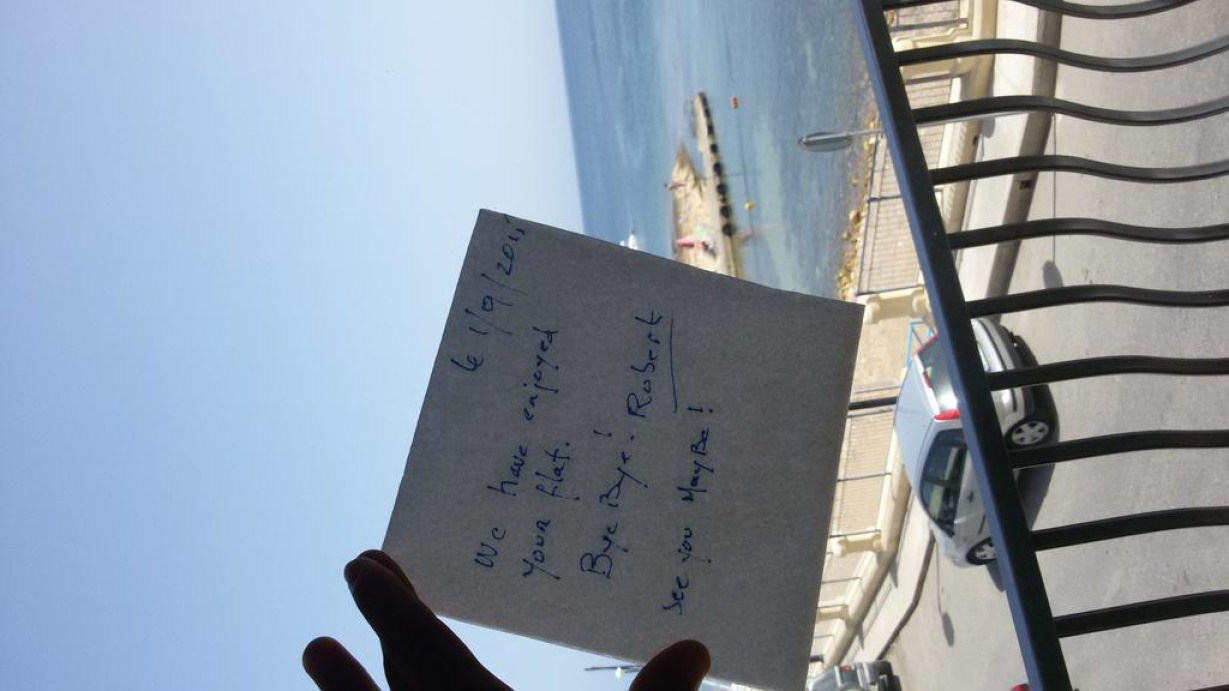 le 1/9/2011
We have enjoyed
your flat.
Bye Bye!
Robert
See you MayBe!